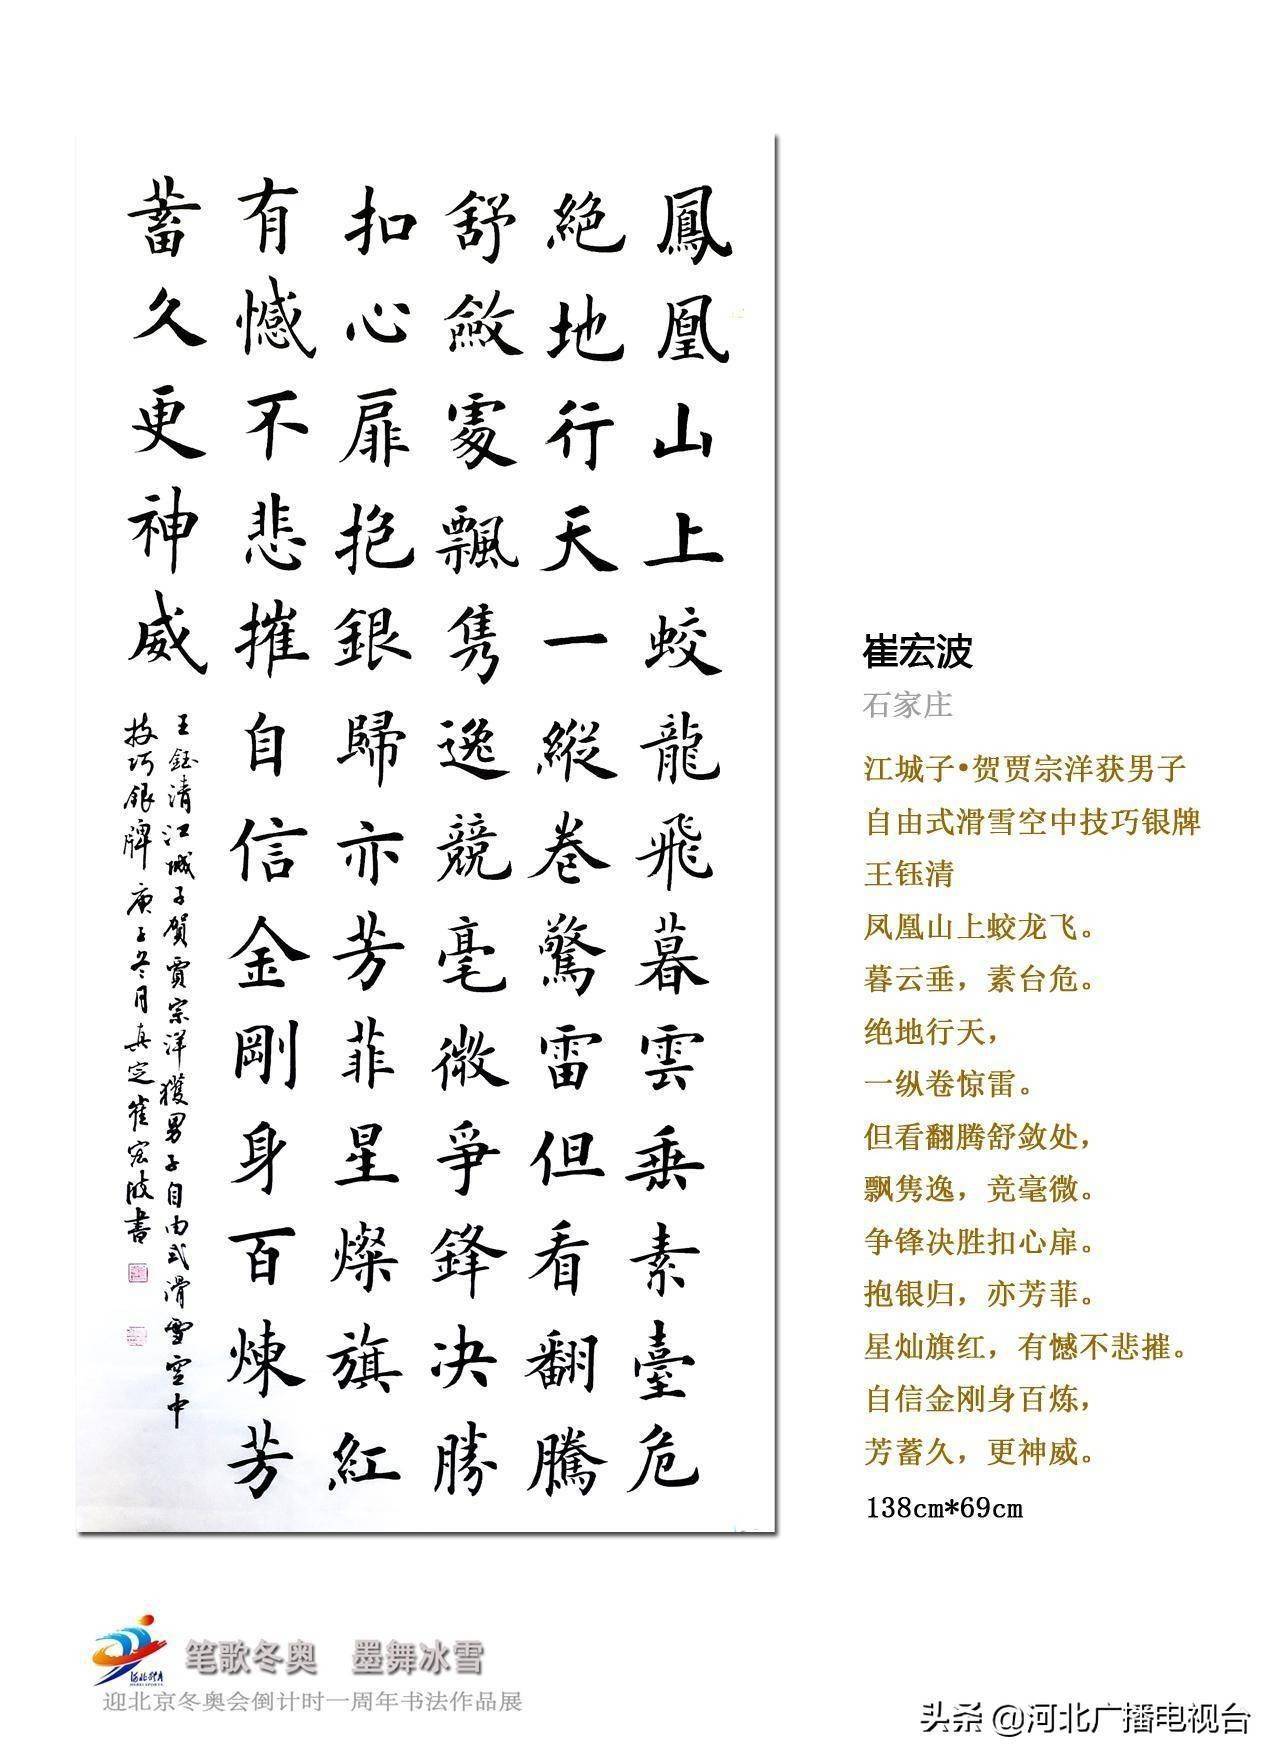 鳳凰山上蛟龍飛暮雲垂素臺危
絶地行天一縱卷驚雷但看翻騰
舒斂處飄雋逸競毫微爭鋒决勝
扣心扉抱銀歸亦芳菲星燦旗紅
有憾不悲摧自信金剛身百煉芳
蓄久更神威
王鈺清江城子賀賈宗洋獲男子自由式滑雪空中
技巧銀牌庚子冬月真定崔宏波書
崔宏波
石家庄
江城子•贺贾宗洋获男子
自由式滑雪空中技巧银牌
王钰清
凤凰山上蛟龙飞。
暮云垂，素台危。
绝地行天，
一纵卷惊雷。
但看翻腾舒敛处，
飘隽逸，竞毫微。
争锋决胜扣心扉。
抱银归，亦芳菲。
星灿旗红，有憾不悲摧。
自信金刚身百炼，
芳蓄久，更神威。
138cm*69cm
河北体育
HEBEI SPORTS
笔歌冬奥 墨舞冰雪
迎北京冬奥会倒计时一周年书法作品展
头条 @河北广播电视台